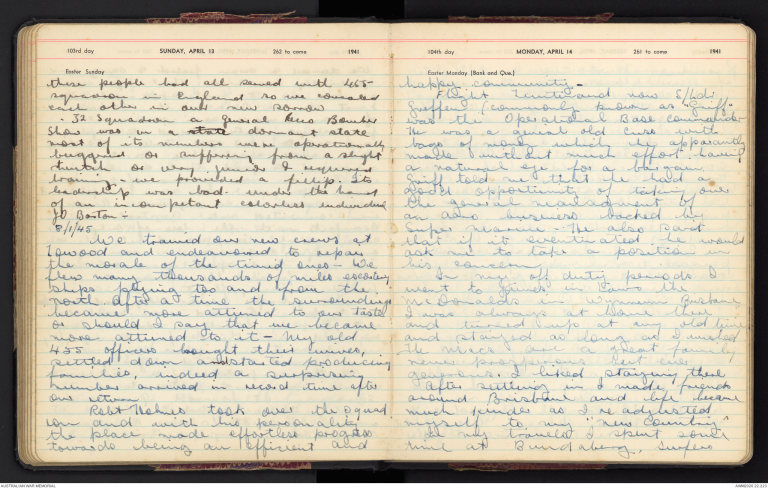 103rd day SUNDAY, APRIL 13 262 to come 1941
Easter Sunday
these people had all served with 455
squadron in England so we consoled
each other in our new sorrow
- 32 Squadron a General Recco Bomber
Show was in a state dormant state
most of its members were operationally
buggered or suffering from a slight
twitch or very junior & required
training - we provided a fillip. Its
leadership was bad under the hand
of an incompetant colorless individual
8/1/45
We trained our new crews at
Lowood and endeavoured to repair
the morale of the tired ones - We
flew many thousands of miles escorting
ships plying too and from the
north. After a time the surroundings
became more attuned to our taste
or should I say that we became
more attuned to it - My old
455 officers bought their wives,
settled down and started producing
families, indeed a surprising
number arrived in record time after
our return
Robt Holmes took over the squad
ron and with his personality
the place made effortless progress
towards being an efficient and
104th day MONDAY, APRIL 14 261 to come 1941
Easter Monday (Bank and Que.)
happy community -
Flight Lieut and now S/Ldr
Greffen (commonly known as "Griff"
was the Operational Base Commander
He was a genial old cuss with
bags of money which he apparently
made without much effort having
a natural eye for a bargain
Griff told me that he had a
good opportunity of taking over
the general management of
an aero business backed by
Super Marine - He also said
that if it eventuated he would
ask me to take a position in
his concern
In my off duty periods I
went to friends in town the
McDonalds in Wynnum Brisbane
I was always at home there
and turned up at any old time
and stayed as long as I wished
The Macs are a great family
never prosperous but ever
generous. I liked staying there
After settling in I made friends
around Brisbane and life became
much kinder as I re adjusted
myself to my "new country"
In my travels I spent some
time at Bundaberg, Surfers
AUSTRALIAN WAR MEMORIAL